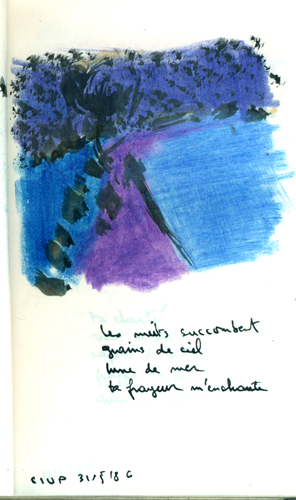 les nuits succombent
grains de ciel
lune de mer
ta frayeur m'enchante
CIUP 31/5/86